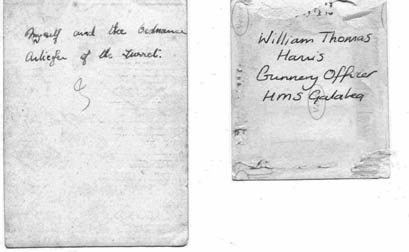 Myself and the Ordnance
Artificer of the turret.
William Thomas
Harris
Gunnery Officer
HMS Galatea